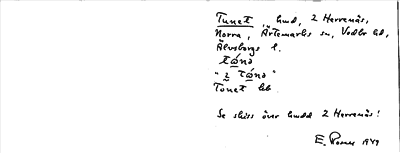 Tunet, hmd, 2 Herrenäs,
Norra, Ärtemarks sn, Vedbo hd,
Älvsborgs l.
tώnə
"ƨ tώnə"
Tonet lbb
Se skiss över hmdd 2 Herrenäs!
E. 1949